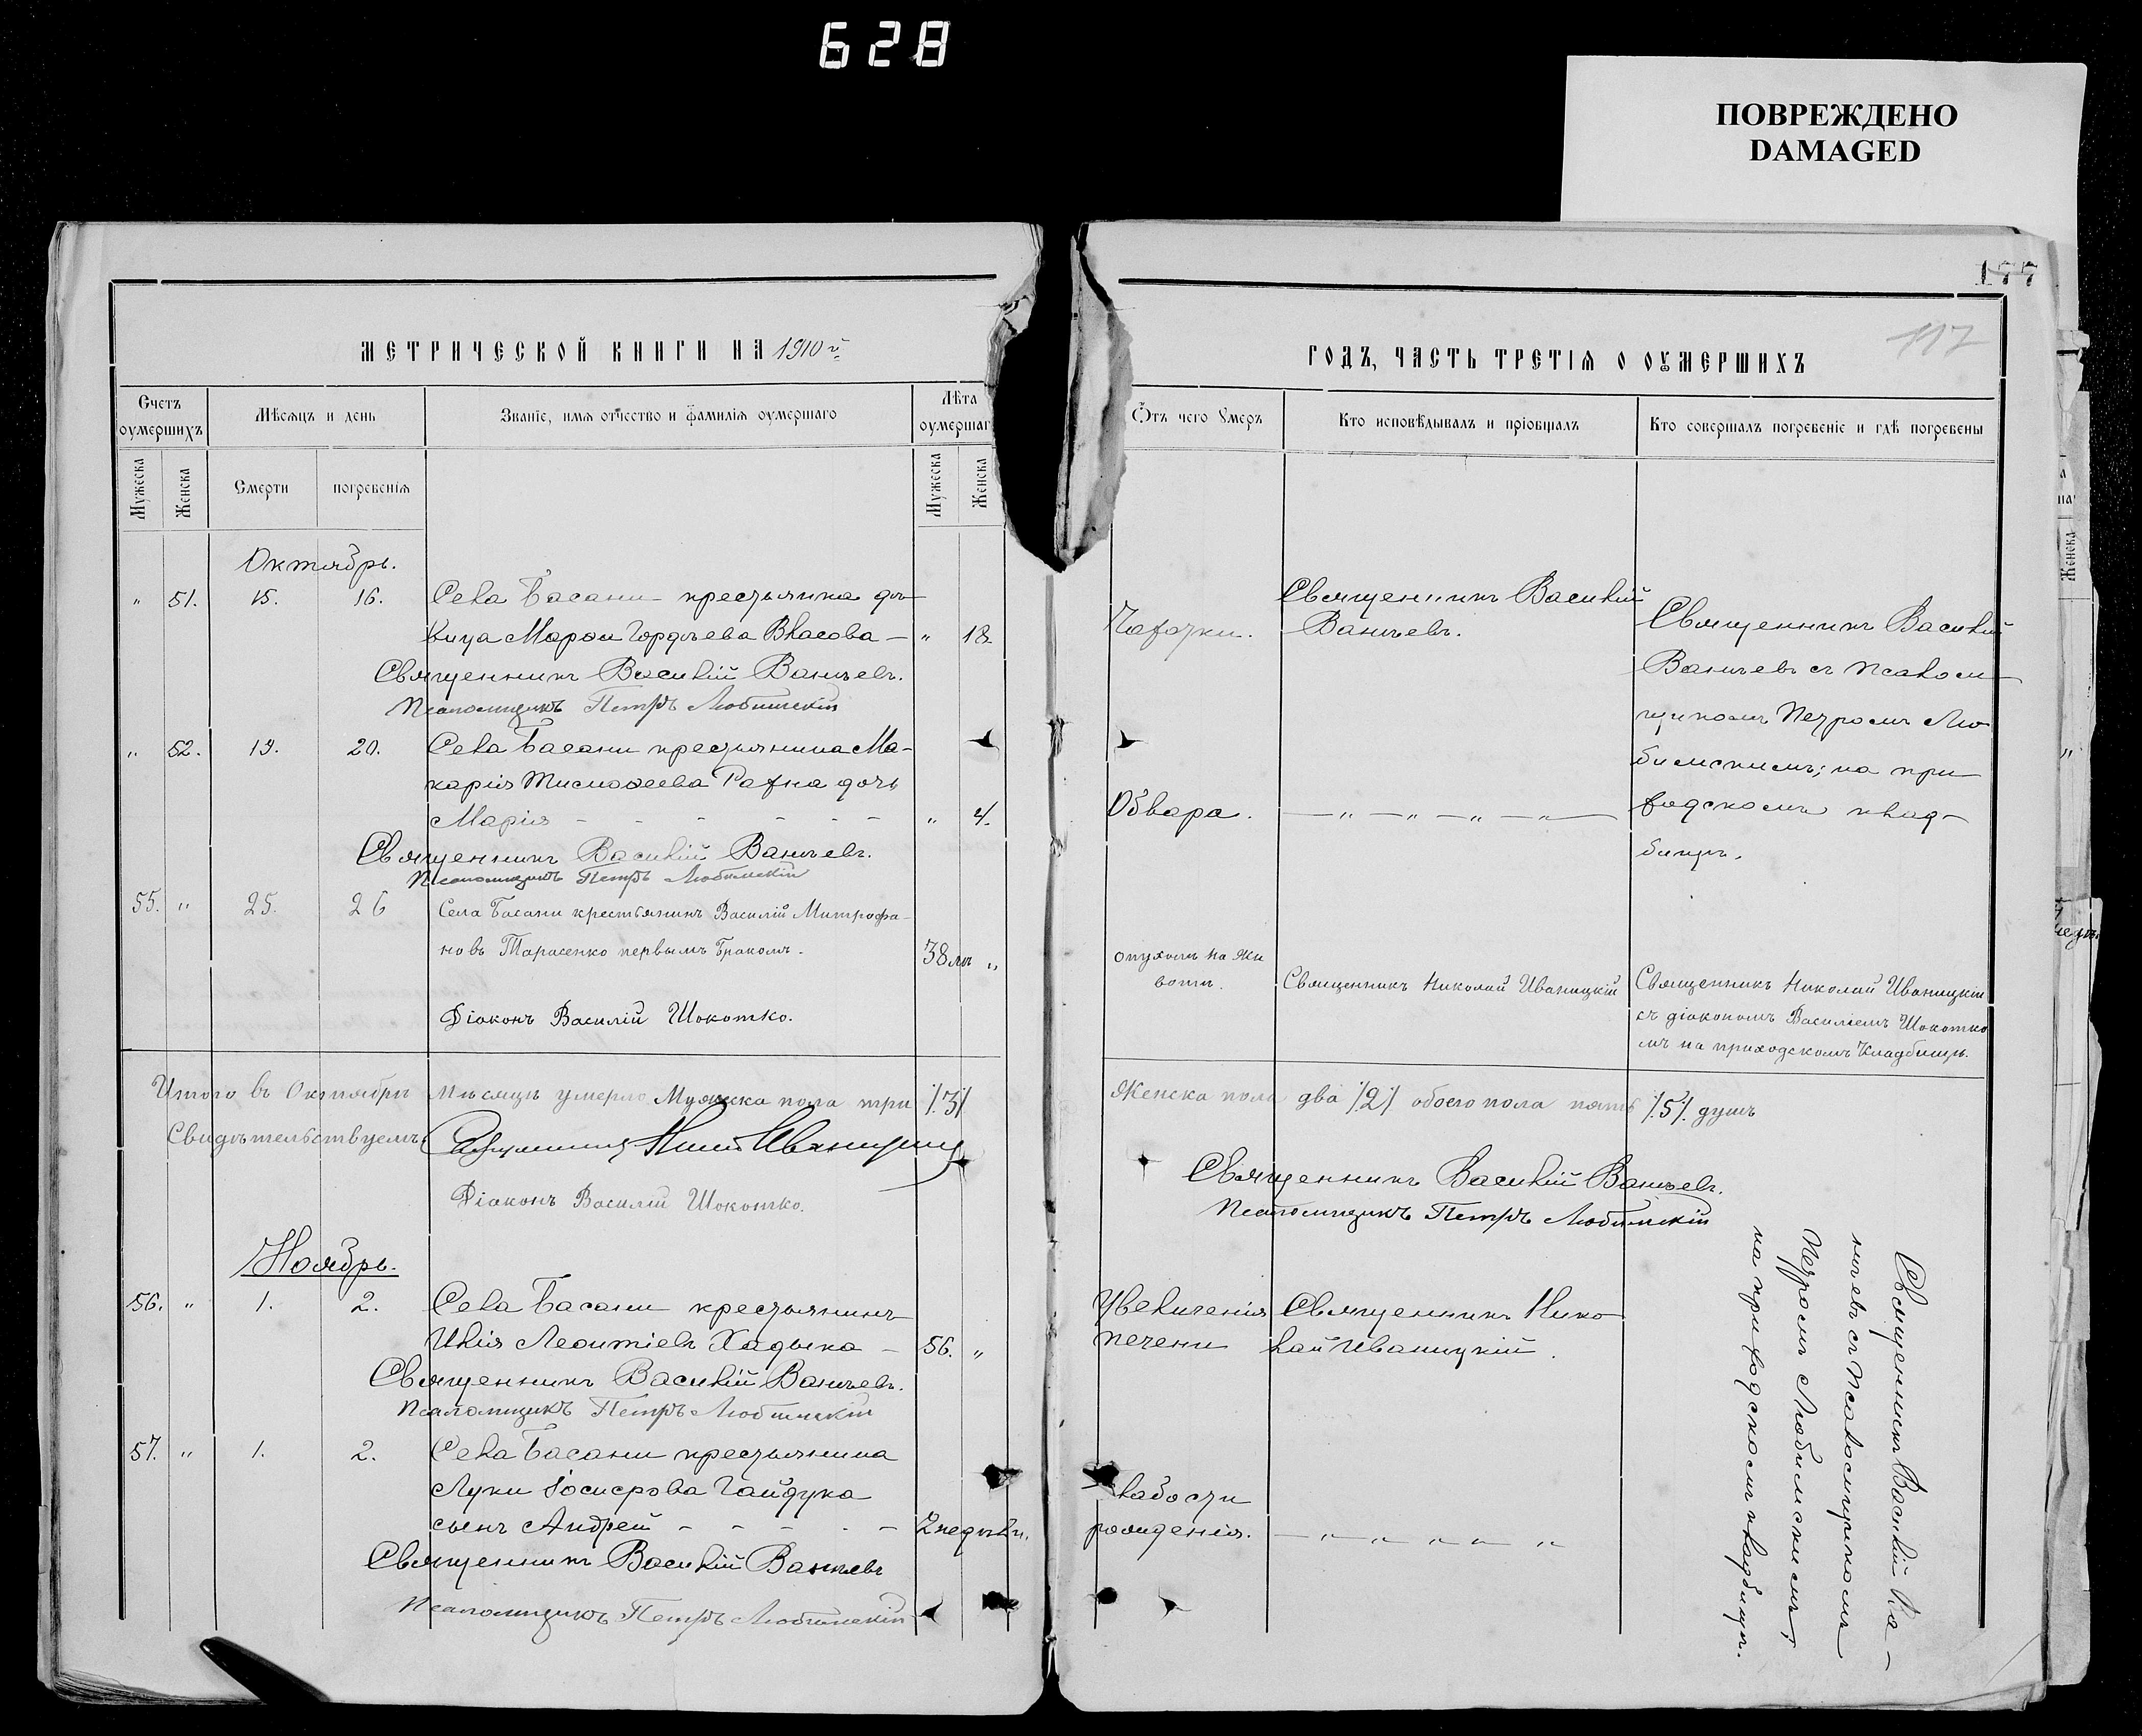 628
ПОВРЕЖДЕНО
DAMAGED
177
117
МЕТРИЧЕСКОЙ КНИГИ НА 1910 й
Счетъ оумершихъ
Мѣсяцъ и день
Званіе, имя отчество и фамилія оумершаго
Лѣта оумершаг
Мужеска
Женска
Смерти
погребенія
Мужеска
Женска
Октябрь.
" 51. 15. 16. Села Басани крестьянина до-
вица Марѳа Гордѣева Власова — " 18.
Священникъ Василій Ваньевъ.
Псаломщикъ Петръ Любимскій
" 52. 19. 20. Села Басани крестьянина Ма-
карія Тимоѳеева Рахна дочь
Марія - - - - - - " 4.
Священникъ Василій Ваньевъ.
Псаломщикъ Петръ Любимскій
55. " 25. 26 Села Басани крестьянинъ Василій Митрофа-
новъ Тарасенко первымъ бракомъ. 38 лѣтъ "
Діаконъ Василій Шокотко.
Итого въ Октябрѣ мѣсяцѣ умерло Мужеска пола три /3/
Свидѣтельствуемъ: Священникъ Ник. Иваницкій
Діаконъ Василій Шокотко.
Ноябрь.
56. " 1. 2. Села Басани крестьянинъ
Илія Леонтіевъ Хадыка — 56. "
Священникъ Василій Ваньевъ.
Псаломщикъ Петръ Любимскій
57. " 1. 2. Села Басани крестьянина
Луки Іосифова Гайдука
сынъ Андрей - - - - - 2 недѣли.
Священникъ Василій Ваньевъ
Псаломщикъ Петръ Любимскій
ГОДЪ, ЧАСТЬ ТРЕТІЯ О ОУМЕРШИХЪ
Ѿтъ чего оумеръ
Кто исповѣдывалъ и пріобщалъ
Кто совершалъ погребеніе и гдѣ погребены
Чахотки.
Священникъ Василій
Ваньевъ.
Священникъ Василій
Ваньевъ съ псалом-
щикомъ Петромъ Лю-
бимскимъ; на при-
ходскомъ клад-
бищѣ.
Обвара. — " — " — " — " —
опухоль на жи
вотѣ.
Священникъ Николай Иваницкій
Священникъ Николай Иваницкій
съ діакономъ Василіемъ Шокотко
мъ на приходскомъ кладбищѣ.
Женска пола два /2/ обоего пола пять /5/ душъ
Священникъ Василій Ваньевъ.
Псаломщикъ Петръ Любимскій
Увеличенія
печени
Священникъ Нико
лай Иваницкій.
Слабости
рожденія. — " — " — " — "
Священникъ Василій Ва-
ньевъ съ псаломщикомъ
Петромъ Любимскимъ;
на приходскомъ кладбищѣ.
Женска